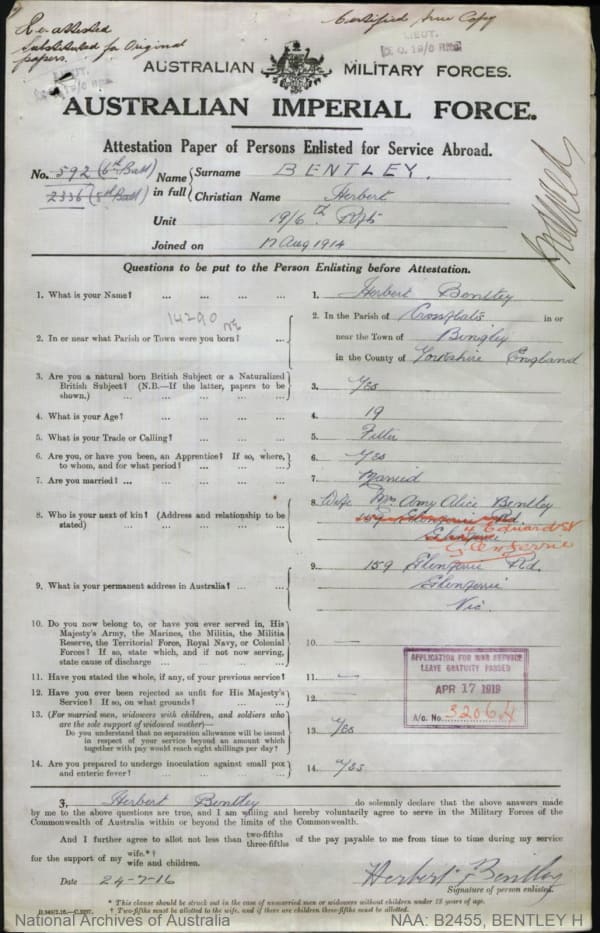 Re attested
Substituted for Original
papers.
Certified True Copy
LIEUT.
LIEUT.
AUSTRALIAN MILITARY FORCES.
AUSTRALIAN IMPERIAL FORCE.
Attestation Paper of Persons Enlisted for Service Abroad.
No. 592 (6th Batt)
2336 (8th Batt)
Name in full
Surname BENTLEY.
Christian Name Herbert
Unit 19/6th Rfts
Joined on 17 Aug 1914
Questions to be put to the Person Enlisting before Attestation.
1. What is your Name? ... ... ... ... 1. Herbert Bentley
14290
2. In or near what Parish or Town were you born? ...
2. In the Parish of Crossflats in or
near the Town of Bingley
in the County of Yorkshire England
3. Are you a natural born British Subject or a Naturalized
British Subject? (N.B.—If the latter, papers to be
shown.) ... ... ... ... 3. Yes
4. What is your Age? ... ... ... ... 4. 19
5. What is your Trade or Calling? ... ... ... 5. Fitter
6. Are you, or have you been, an Apprentice? If so, where,
to whom, and for what period? ... ... ... 6. Yes
7. Are you married? ... ... ... ... 7. Married
8. Who is your next of kin? (Address and relationship to be
stated) ... ... ... ...
8. Wife Mrs Amy Alice Bentley
159 Glenferrie Rd
Glenferrie
4 Edward St
Glenferrie
9. What is your permanent address in Australia? ... ...
9. 159 Glenferrie Rd.
Glenferrie
Vic.
10. Do you now belong to, or have you ever served in, His
Majesty's Army, the Marines, the Militia, the Militia
Reserve, the Territorial Force, Royal Navy, or Colonial
Forces? If so, state which, and if not now serving,
state cause of discharge ... ... ... 10. —
11. Have you stated the whole, if any, of your previous service? 11. —
12. Have you ever been rejected as unfit for His Majesty's
Service? If so, on what grounds? ... ... 12. —
APPLICATION FOR WAR SERVICE
LEAVE GRATUITY PASSED
APR 17 1919
A/c. No. 32064
13. (For married men, widowers with children, and soldiers who
are the sole support of widowed mother)—
Do you understand that no separation allowance will be issued
in respect of your service beyond an amount which
together with pay would reach eight shillings per day? 13. Yes
14. Are you prepared to undergo inoculation against small pox
and enteric fever? ... ... ... ... 14. Yes
I, Herbert Bentley do solemnly declare that the above answers made
by me to the above questions are true, and I am willing and hereby voluntarily agree to serve in the Military Forces of the
Commonwealth of Australia within or beyond the limits of the Commonwealth.
And I further agree to allot not less than two-fifths three-fifths of the pay payable to me from time to time during my service
for the support of my wife.*† wife and children.
Date 24-7-16
Herbert Bentley
Signature of person enlisted.
* This clause should be struck out in the case of unmarried men or widowers without children under 18 years of age.
† Two-fifths must be allotted to the wife, and if there are children three-fifths must be allotted.
National Archives of Australia
NAA: B2455, BENTLEY H